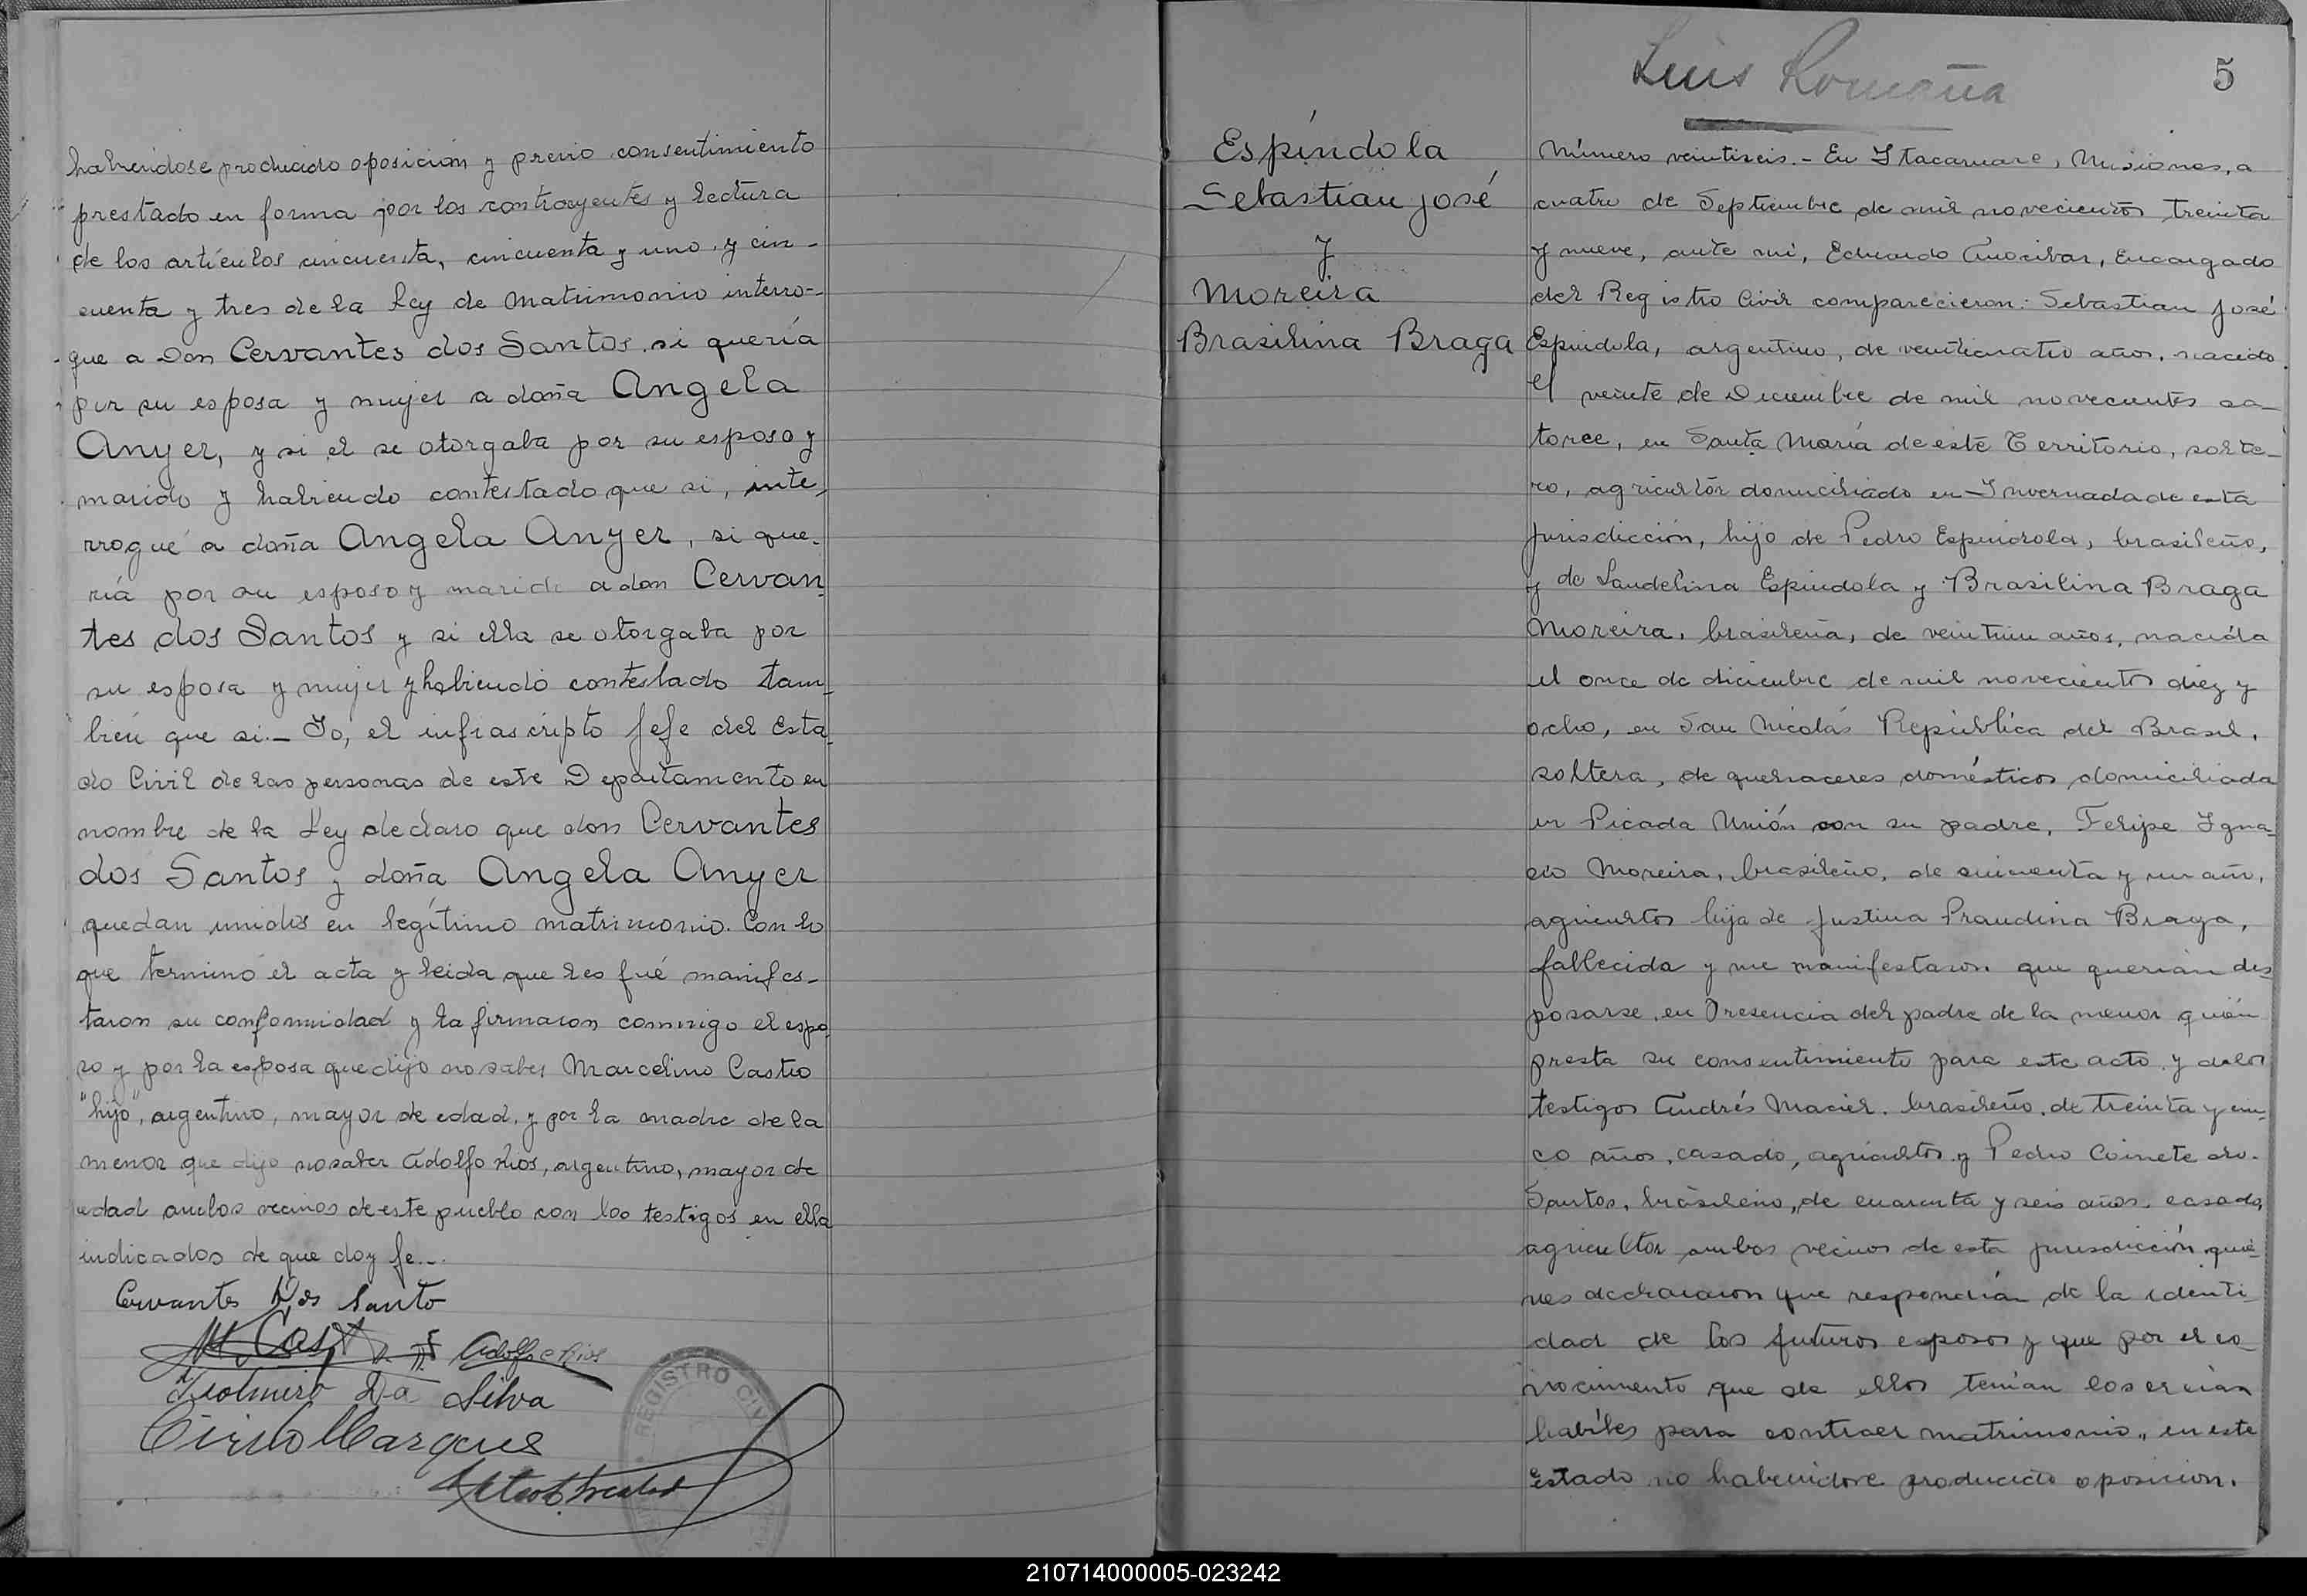 habiendose producido oposición y previo consentimiento
prestado en forma por los contrayentes y lectura
de los artículos cincuenta, cincuenta y uno y cin-
cuenta y tres de la Ley de Matrimonio interro-
gue a Don Cervantes dos Santos si quería
por su esposa y mujer a doña Angela
Anyer, y si el se otorgaba por su esposo y
marido y habiendo contestado que si, inte-
rrogué a doña Angela Anyer, si que-
ría por su esposo y marido a don Cervan
tes dos Santos y si ella se otorgaba por
su esposa y mujer y habiendo contestado tam-
bién que si.- Yo, el infrascripto Jefe del Esta-
do Civil de las personas de este Departamento en
nombre de la Ley declaro que don Cervantes
dos Santos y doña Angela Anyer
quedan unidos en legítimo matrimonio. Con lo
que terminó el acta y leida que les fué manifes-
taron su conformidad y la firmaron conmigo el espo-
so y por la esposa que dijo no saber Marcelino Castro
"hijo", argentino, mayor de edad, y por la madre de la
menor que dijo no saber Adolfo Rios, argentino, mayor de
edad ambos vecinos de este pueblo con los testigos en ella
indicados de que doy fe.-.
Cervantes Dos Santo
M. Cast Adolfo Rios
Da Silva
Cirilo Marques
REGISTRO CIV
Luis Romaña
5
Espíndola
Sebastian José
y
Moreira
Brasilina Braga
Número veintiseis.- En Itacaruare, Misiones, a
cuatro de Septiembre de mil novecientos treinta
y nueve, ante mi, Eduardo Anocibar, Encargado
del Registro Civil comparecieron: Sebastian José
Espindola, argentino, de veinticuatro años, nacido
el veinte de Diciembre de mil novecientos ca-
torce, en Santa María de este Territorio, solte-
ro, agricultor domiciliado en Invernada de esta
jurisdicción, hijo de Pedro Espindola, brasileño,
y de Laudelina Espindola y Brasilina Braga
Moreira, brasileña, de veintiun años, nacida
el once de diciembre de mil novecientos diez y
ocho, en San Nicolás República del Brasil,
soltera, de quehaceres domésticos, domiciliada
en Picada Unión con su padre, Felipe Igna-
cio Moreira, brasileño, de cincuenta y un año,
agricultor hija de Justina Praudina Braga,
fallecida y me manifestaron que querian des
posarse, en Presencia del padre de la menor quién
presta su consentimiento para este acto y de los
testigos Andrés Maciel, brasileño, de treinta y cin-
co años, casado, agricultor y Pedro Coinete dos
Santos, brasileño, de cuarenta y seis años, casado,
agricultor ambos vecinos de esta jurisdicción quié-
nes declararon que respondían de la identi-
dad de los futuros esposos y que por el co-
nocimiento que de ellos tenian los creian
habíles para contraer matrimonio, en este
Estado no habiendose producido oposicion.
210714000005-023242